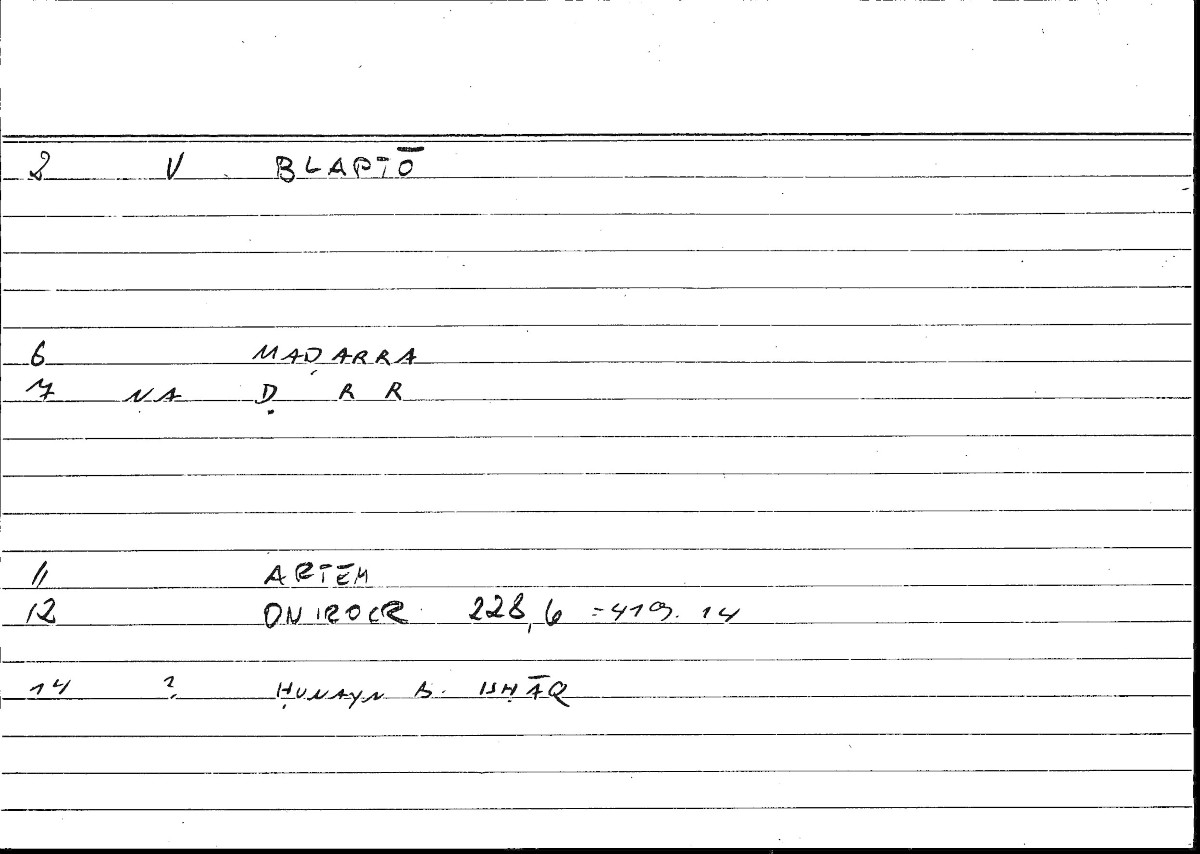 2 V BLAPTŌ
6 MAḌARRA
7 NA Ḍ R R
11 ARTEM
12 ONIROCR 228,6 =419.14
14 ? ḤUNAYN B. ISḤĀQ